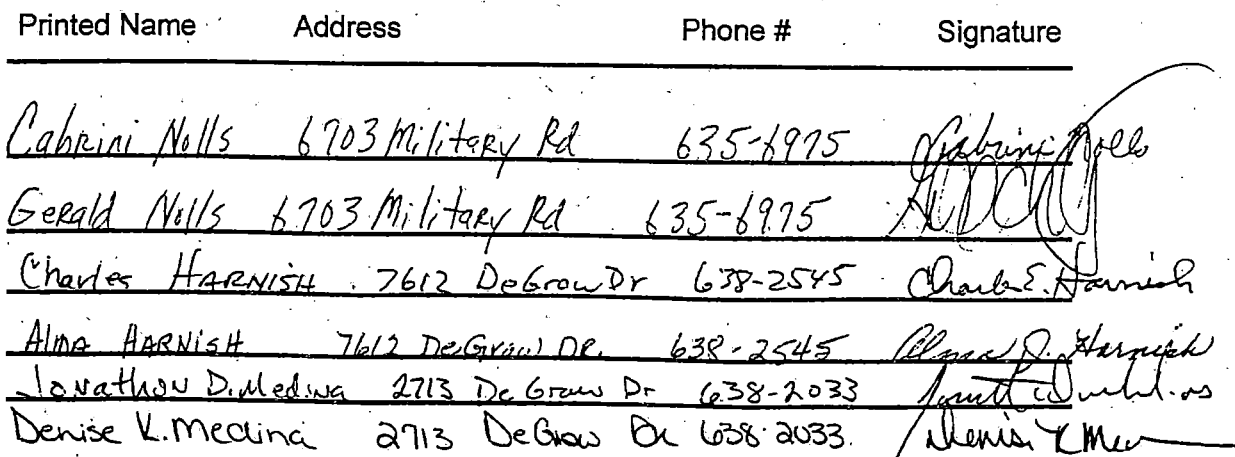 Printed Name Address Phone # Signature
Cabrini Nolls 6703 Military Rd 635-6975 Cabrini Nolls
Gerald Nolls 6703 Military Rd 635-6975
Charles HARNISH 7612 DeGrow Dr 638-2545 Charles E. Harnish
Alma HARNISH 7612 DeGrow DR. 638-2545 Alma J. Harnish
Jonathon D. Medina 2713 De Grow Dr 638-2033
Denise K. Medina 2713 DeGrow Dr 638-2033. Denise K Me